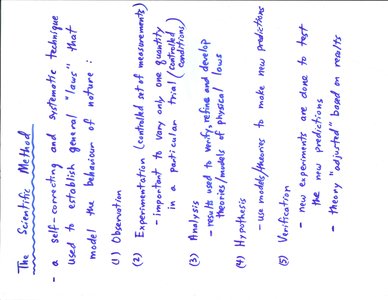 The Scientific Method
- a self-correcting and systematic technique
used to establish general "laws" that
model the behaviour of nature :
(1) Observation
(2) Experimentation (controlled set of measurements)
- important to vary only one quantity
in a particular trial (controlled conditions)
(3) Analysis
- results used to verify, refine and develop
theories/models of physical laws
(4) Hypothesis
- use models/theories to make new predictions
(5) Verification
- new experiments are done to test
the new predictions
- theory "adjusted" based on results